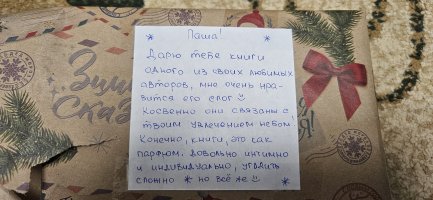 * Паша! *
Дарю тебе книги
одного из своих любимых
авторов, мне очень нра-
вится его слог
Косвенно они связаны с
твоим увлечением небом!
Конечно, книги, это как
парфюм. Довольно интимно
и индивидуально, угадать
сложно * но всё же *
Зимняя
сказка